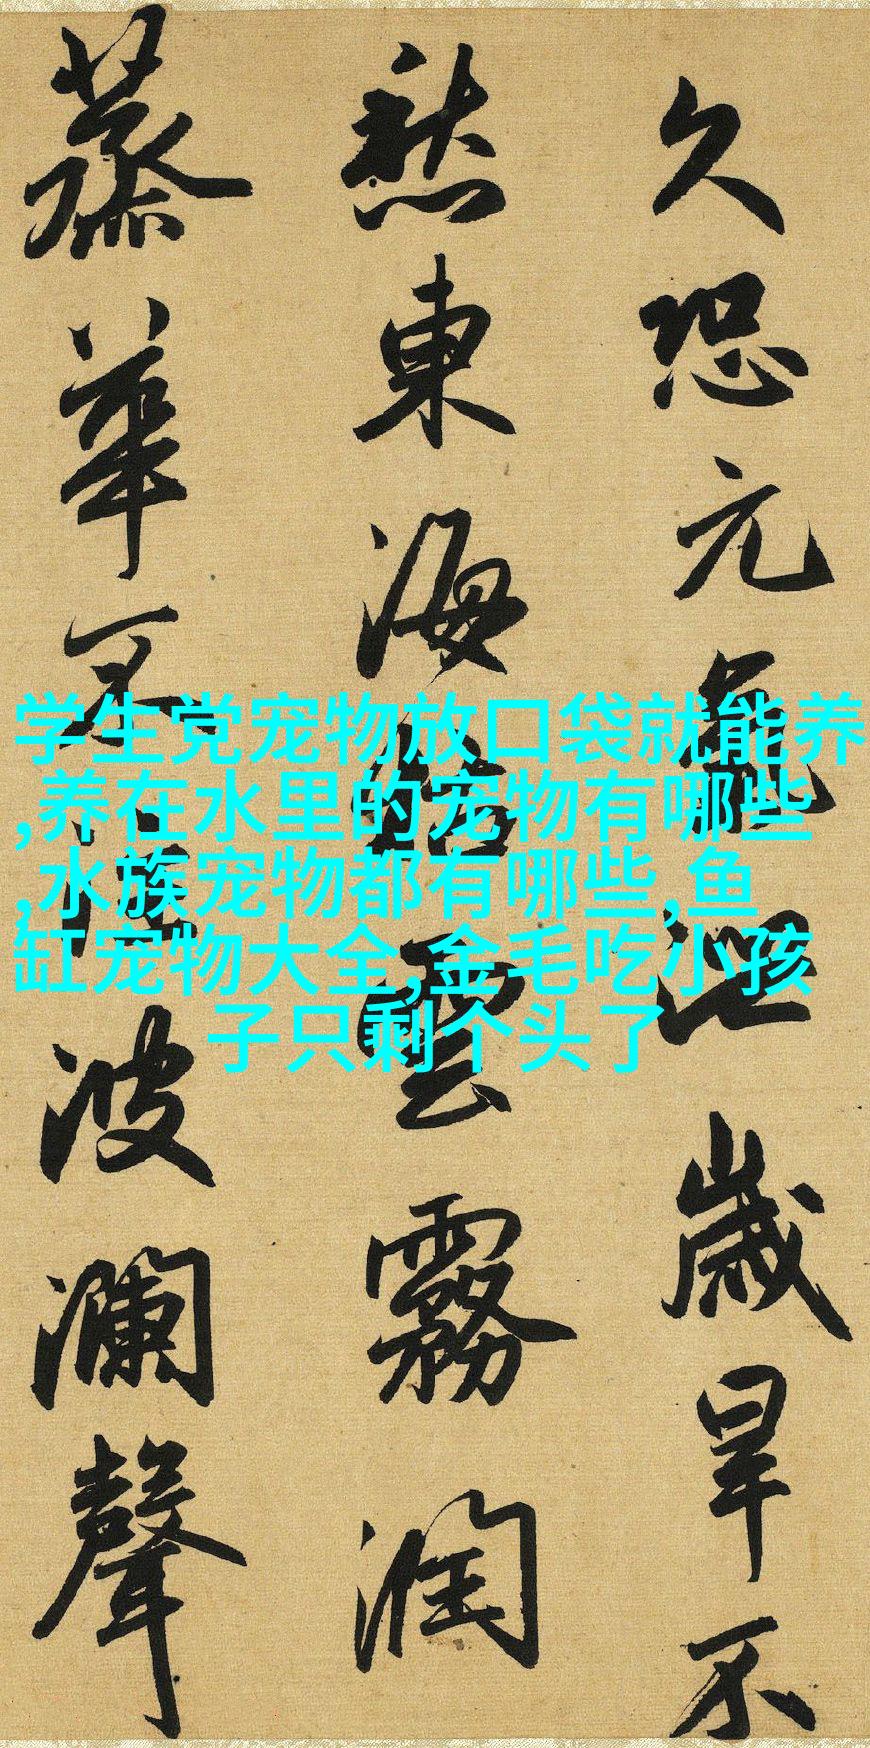 久恐元氣泄歲旱不
愁東海枯雲霧潤
蒸華不注波瀾聲
学生党宠物放口袋就能养
,养在水里的宠物有哪些
,水族宠物都有哪些,鱼
缸宠物大全,金毛吃小孩
子只剩个头了